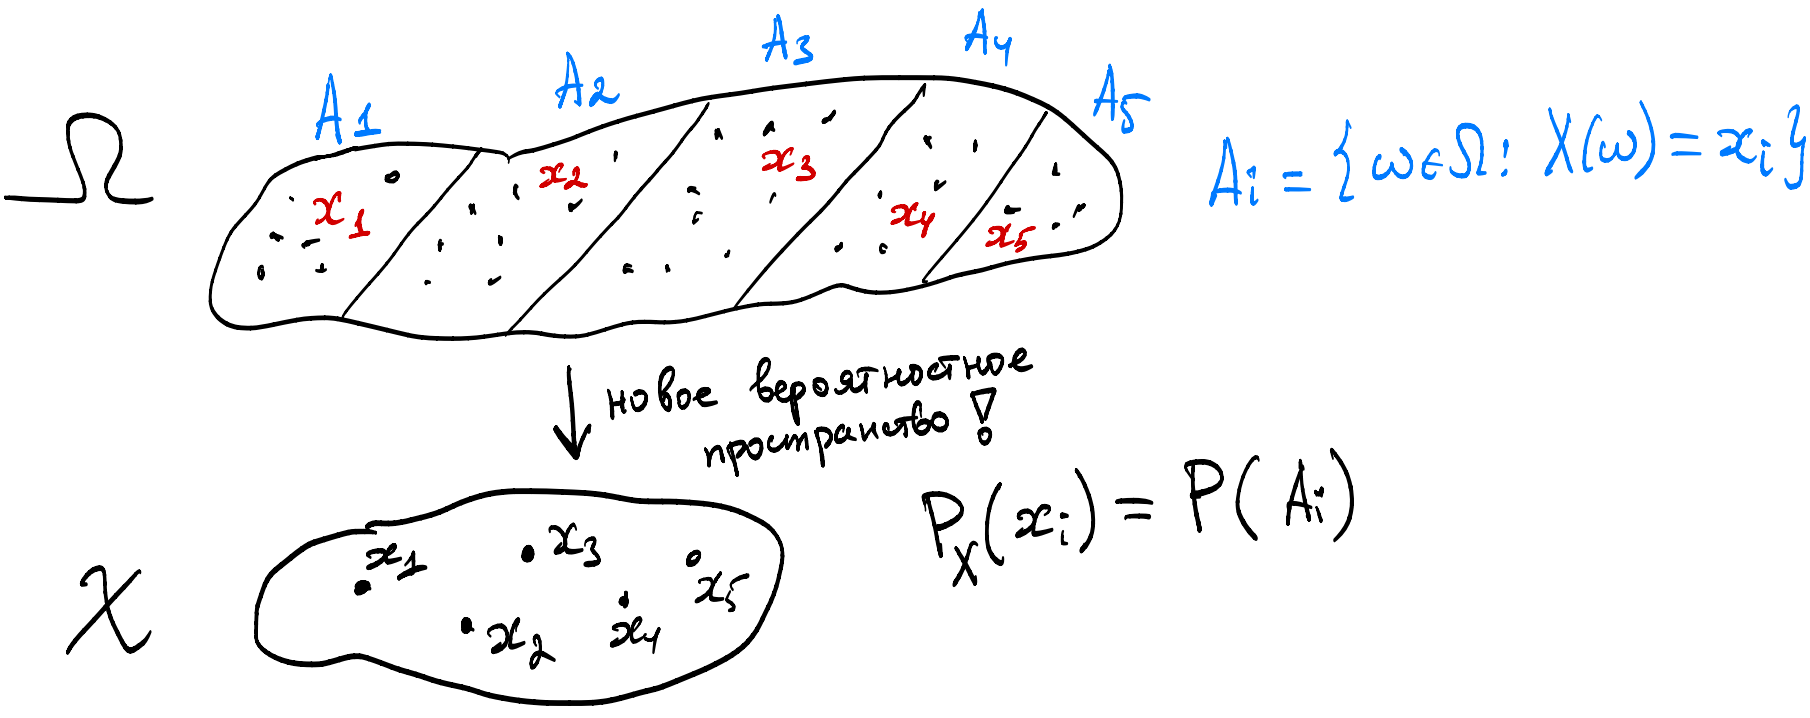 Ω A₁ A₂ A₃ A₄ A₅
x₁ x₂ x₃ x₄ x₅
Aᵢ = { ω ∈ Ω : X(ω) = xᵢ }
новое вероятностное
пространство !
P_X(xᵢ) = P( Aᵢ )
𝒳 x₁ x₂ x₃ x₄ x₅